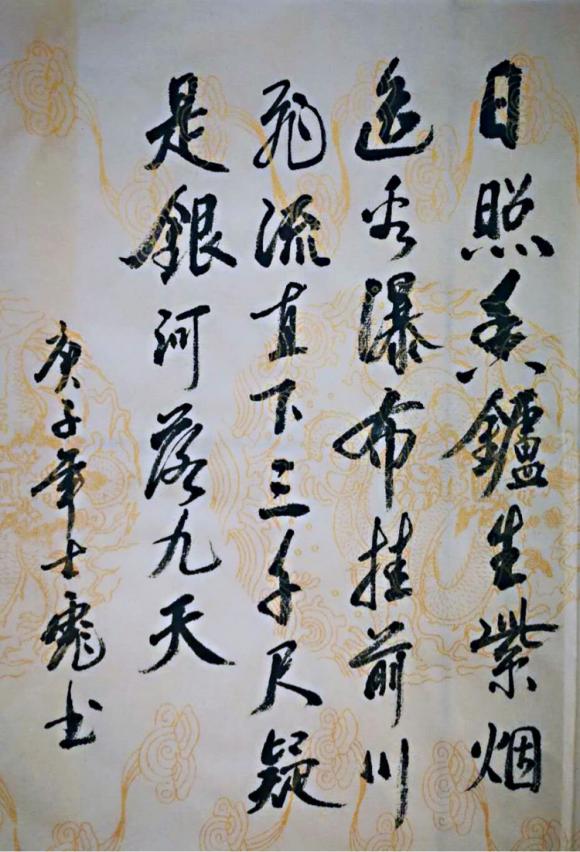 日照香鑪生紫烟
遥看瀑布挂前川
飛流直下三千尺疑
是銀河落九天
庚子年士彪书